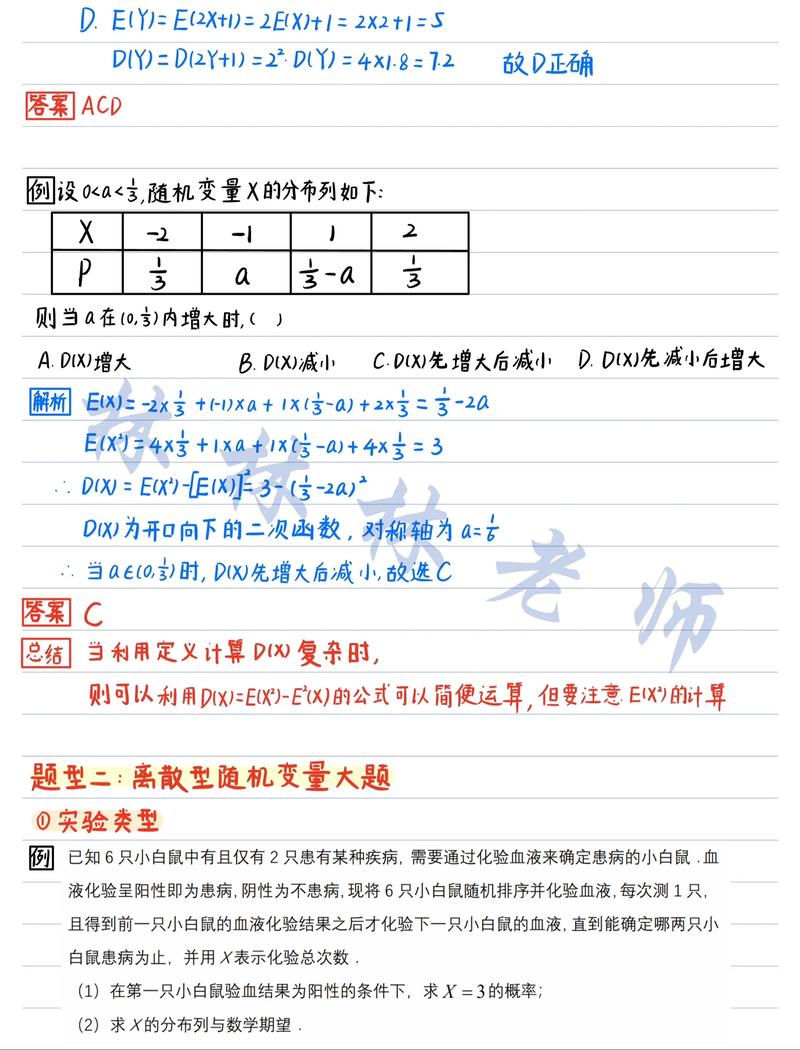 D. E(Y)=E(2X+1)=2E(X)+1=2×2+1=5
D(Y)=D(2Y+1)=2²·D(Y)=4×1.8=7.2 故D正确
答案 ACD
例 设0<a<1/3,随机变量X的分布列如下:
X -2 -1 1 2
P 1/3 a 1/3-a 1/3
则当a在(0,1/3)内增大时,( )
A. D(X)增大 B. D(X)减小 C. D(X)先增大后减小 D. D(X)先减小后增大
解析 E(X)=-2×1/3+(-1)×a+1×(1/3-a)+2×1/3=1/3-2a
E(X²)=4×1/3+1×a+1×(1/3-a)+4×1/3=3
∴ D(X)=E(X²)-[E(X)]²=3-(1/3-2a)²
D(X)为开口向下的二次函数,对称轴为a=1/6
∴ 当a∈(0,1/3)时,D(X)先增大后减小,故选C
林林林老师
答案 C
总结 当利用定义计算D(X)复杂时,
则可以利用D(X)=E(X²)-E²(X)的公式可以简便运算,但要注意E(X²)的计算
题型二:离散型随机变量大题
①实验类型
例 已知6只小白鼠中有且仅有2只患有某种疾病,需要通过化验血液来确定患病的小白鼠.血
液化验呈阳性即为患病,阴性为不患病,现将6只小白鼠随机排序并化验血液,每次测1只,
且得到前一只小白鼠的血液化验结果之后才化验下一只小白鼠的血液,直到能确定哪两只小
白鼠患病为止,并用X表示化验总次数.
(1)在第一只小白鼠验血结果为阳性的条件下,求X=3的概率;
(2)求X的分布列与数学期望.